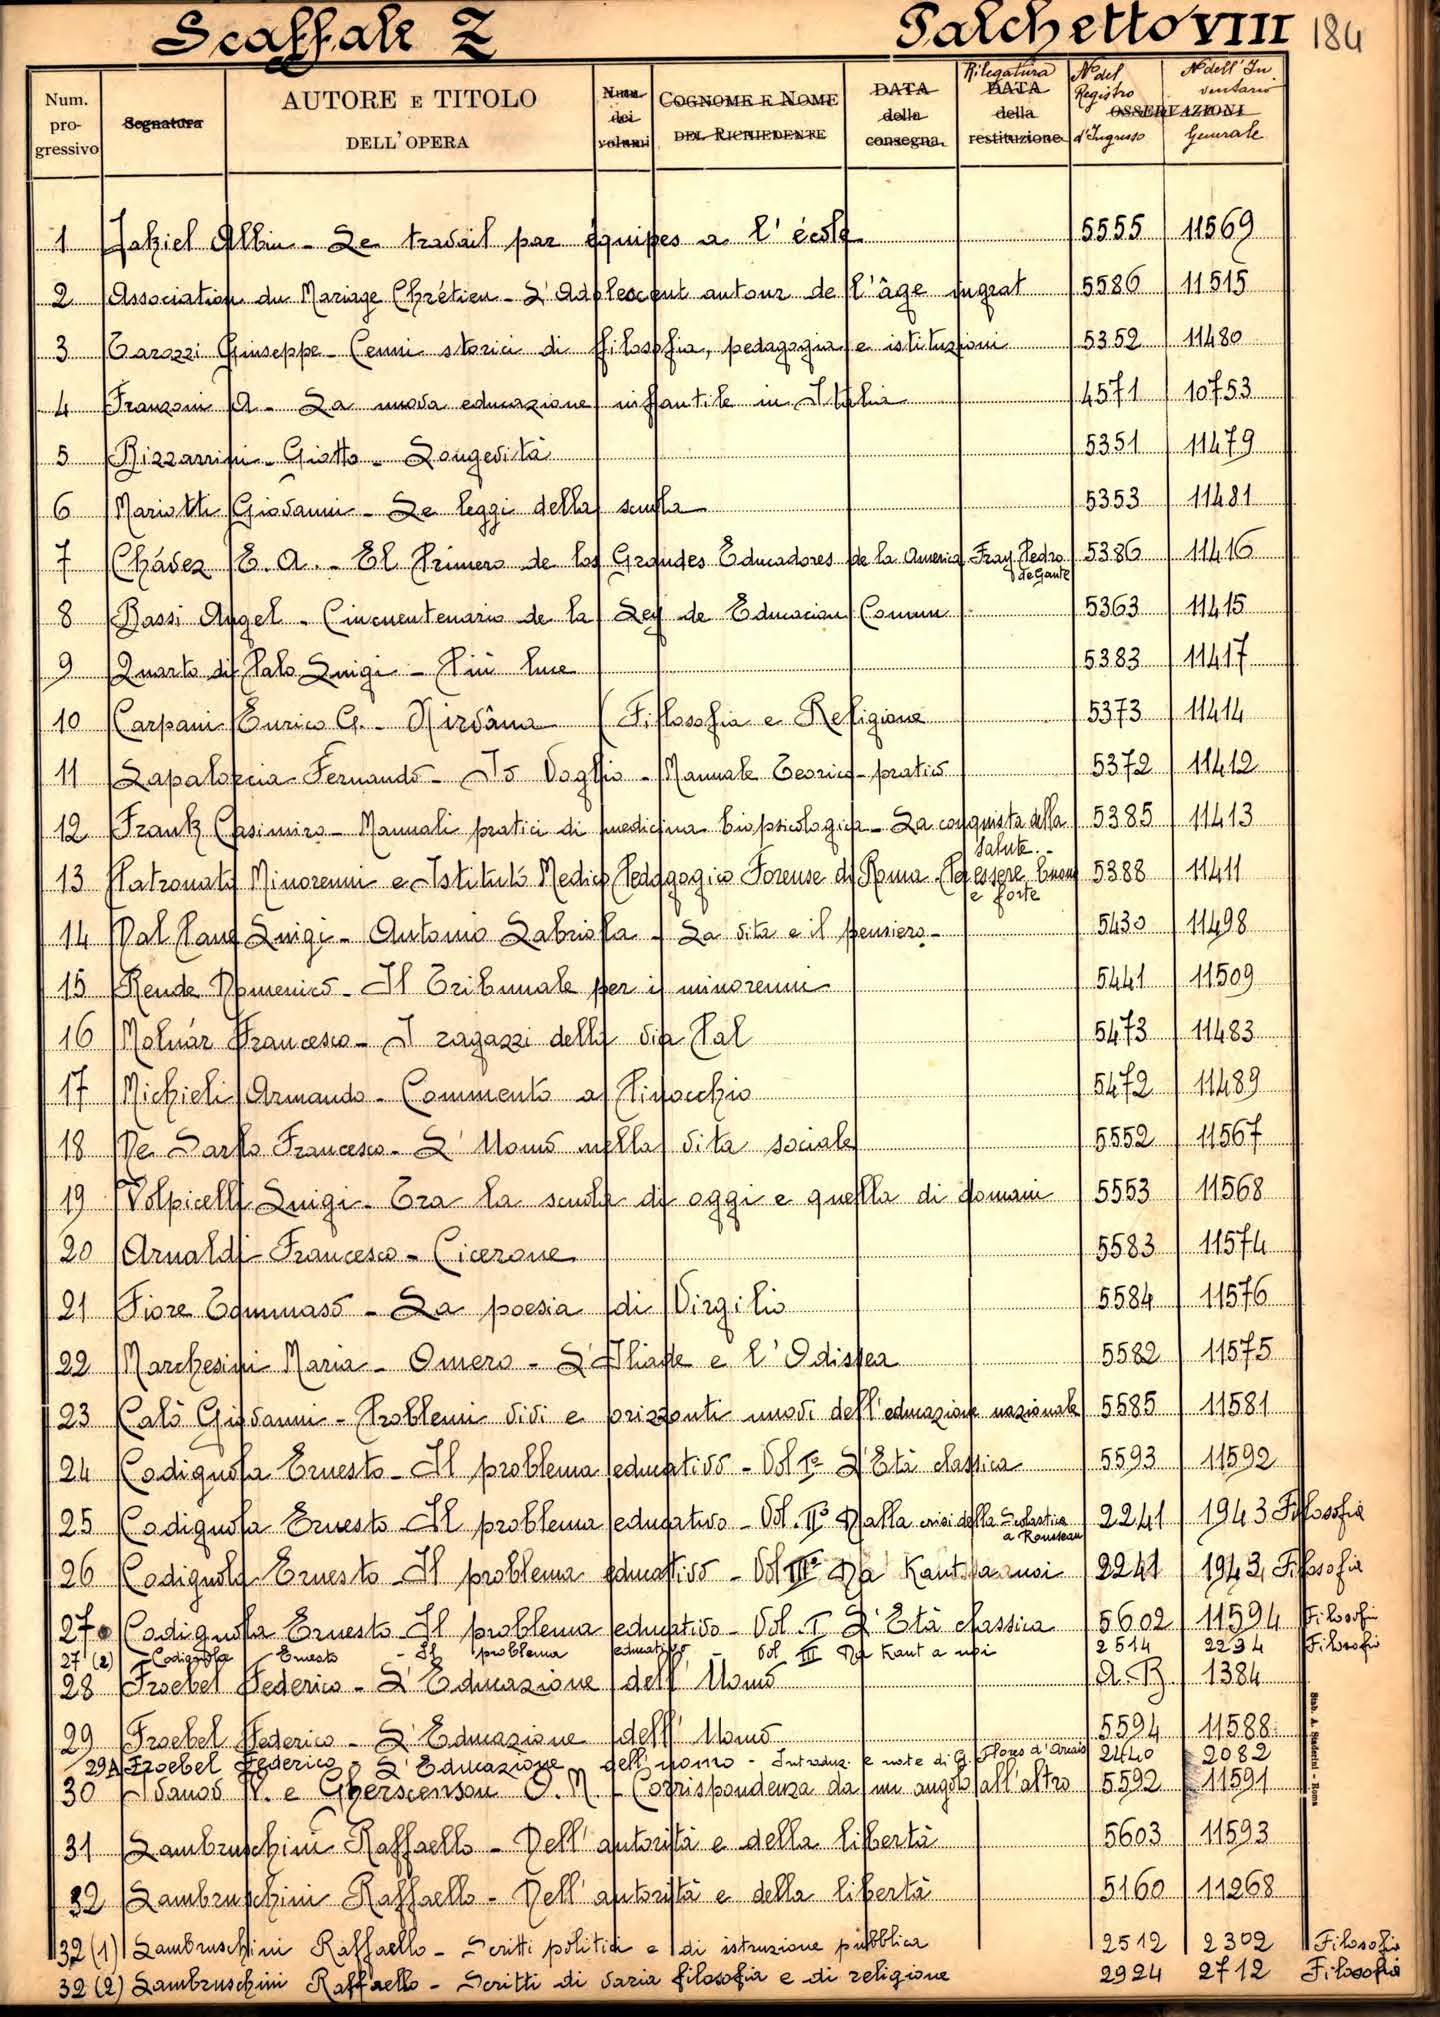 Scaffale Z Palchetto VIII 184
Num. progressivo Segnatura AUTORE E TITOLO DELL'OPERA Num. dei volumi COGNOME E NOME DEL RICHIEDENTE DATA della consegna. Rilegatura DATA della restituzione No del Registro d'Ingresso OSSERVAZIONI No dell'Inventario Generale
1 Jakiel Albin - Le travail par équipes a l'école 5555 11569
2 Association du Mariage Chrétien - L'Adolescent autour de l'âge ingrat 5586 11515
3 Tarozzi Giuseppe - Cenni storici di filosofia, pedagogia e istituzioni 5352 11480
4 Franzoni A - La nuova educazione infantile in Italia 4571 10753
5 Bizzarrini - Giotto - Longevità 5351 11479
6 Mariotti Giovanni - Le leggi della scuola 5353 11481
7 Chávez E. A. - El Primero de los Grandes Educadores de la America Fray Pedro de Gante 5386 11416
8 Bassi Angel - Cincuentenario de la Ley de Educacion Comun 5363 11415
9 Quarto di Palo Luigi - Più luce 5383 11417
10 Carpani Enrico G. - Nirvâna (Filosofia e Religione 5373 11414
11 Lapalorcia Fernando - Io Voglio - Manuale Teorico-pratico 5372 11412
12 Frank Casimiro - Manuali pratici di medicina biopsicologica - La conquista della salute - 5385 11413
13 Patronato Minorenni e Istituto Medico Pedagogico Forense di Roma - Per essere buoni e forte 5388 11411
14 Dal Pane Luigi - Antonio Labriola - La vita e il pensiero - 5430 11498
15 Rende Domenico - Il Tribunale per i minorenni 5441 11509
16 Molnár Francesco - I ragazzi della via Pal 5473 11483
17 Michieli Armando - Commento a Pinocchio 5472 11489
18 De Sarlo Francesco - L'Uomo nella vita sociale 5552 11567
19 Volpicelli Luigi - Tra la scuola di oggi e quella di domani 5553 11568
20 Arnaldi Francesco - Cicerone 5583 11574
21 Fiore Tommaso - La poesia di Virgilio 5584 11576
22 Marchesini Maria - Omero - L'Iliade e l'Odissea 5582 11575
23 Calò Giovanni - Problemi vivi e orizzonti nuovi dell'educazione nazionale 5585 11581
24 Codignola Ernesto - Il problema educativo - Vol I° L'Età classica 5593 11592
25 Codignola Ernesto - Il problema educativo - Vol. II° Dalla crisi della Scolastica a Rousseau 2241 1943 Filosofia
26 Codignola Ernesto - Il problema educativo - Vol III° Da Kant a noi 2241 1943 Filosofia
27 Codignola Ernesto - Il problema educativo - Vol. I L'Età classica 5602 11594 Filosofi
27 (2) Codignola Ernesto - Il problema educativo - Vol. III Da Kant a noi 2514 2294 Filosofi
28 Froebel Federico - L'Educazione dell'Uomo A.B. 1384
29 Froebel Federico - L'Educazione dell'Uomo 5594 11588
29A Froebel Federico - L'Educazione dell'uomo - Introduz. e note di G. Flores d'Arcais 2440 2082
30 Ivanov V. e Gherscenson O. M. - Corrispondenza da un angolo all'altro 5592 11591
31 Lambruschini Raffaello - Dell'autorità e della libertà 5603 11593
32 Lambruschini Raffaello - Dell'autorità e della libertà 5160 11268
32 (1) Lambruschini Raffaello - Scritti politici e di istruzione pubblica 2512 2302 Filosofia
32 (2) Lambruschini Raffaello - Scritti di varia filosofia e di religione 2924 2712 Filosofia
Stab. A. Staderini - Roma